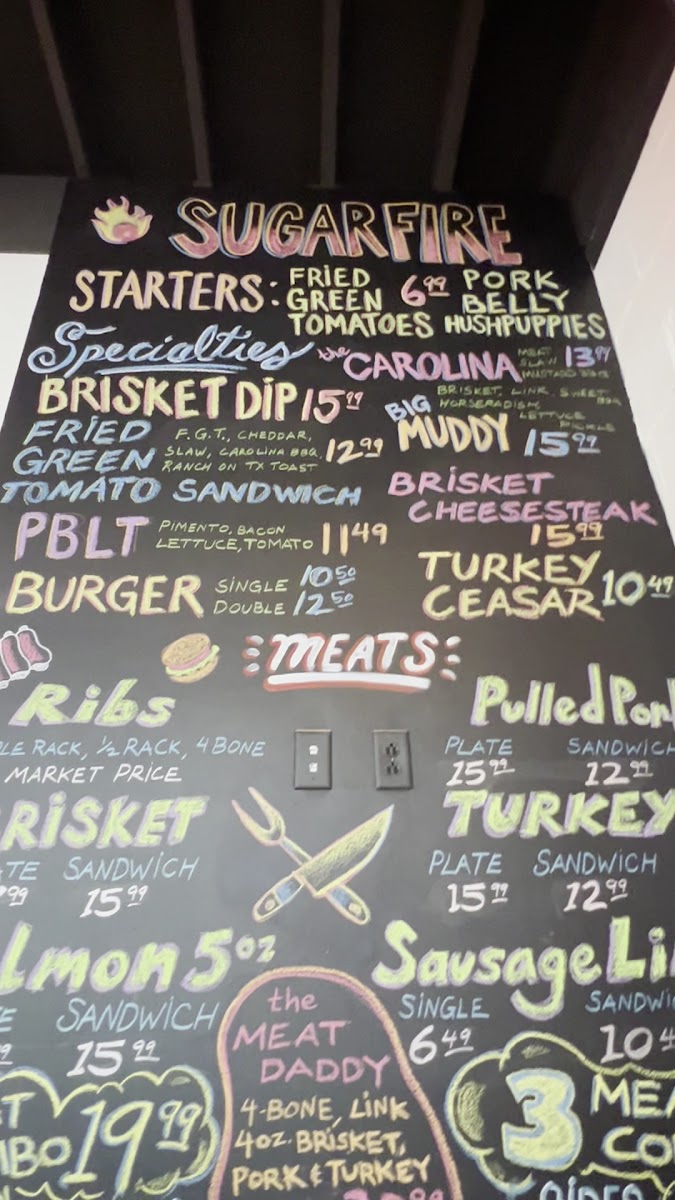 SUGARFIRE
STARTERS: FRIED GREEN TOMATOES 6.99 PORK BELLY HUSHPUPPIES
Specialties
the CAROLINA MEAT, SLAW, MUSTARD BBQ 13.99
BRISKET DIP 15.99
BIG MUDDY BRISKET, LINK, SWEET BBQ
HORSERADISH
LETTUCE
PICKLE
15.99
FRIED GREEN TOMATO SANDWICH
F.G.T., CHEDDAR,
SLAW, CAROLINA BBQ
RANCH ON TX TOAST
12.99
BRISKET
CHEESESTEAK
15.99
PBLT PIMENTO, BACON
LETTUCE, TOMATO 11.49
BURGER SINGLE 10.50
DOUBLE 12.50
TURKEY
CEASAR 10.49
MEATS
Ribs
LE RACK, 1/2 RACK, 4 BONE
MARKET PRICE
Pulled Por
PLATE SANDWICH
15.99 12.99
RISKET
TE SANDWICH
99 15.99
TURKEY
PLATE SANDWICH
15.99 12.99
lmon 5 oz
E SANDWICH
15.99
Sausage Li
SINGLE SANDWI
6.49 10.4
the
MEAT
DADDY
4-BONE, LINK
4oz. BRISKET,
PORK & TURKEY
T
MBO 19.99
3 MEA
CO